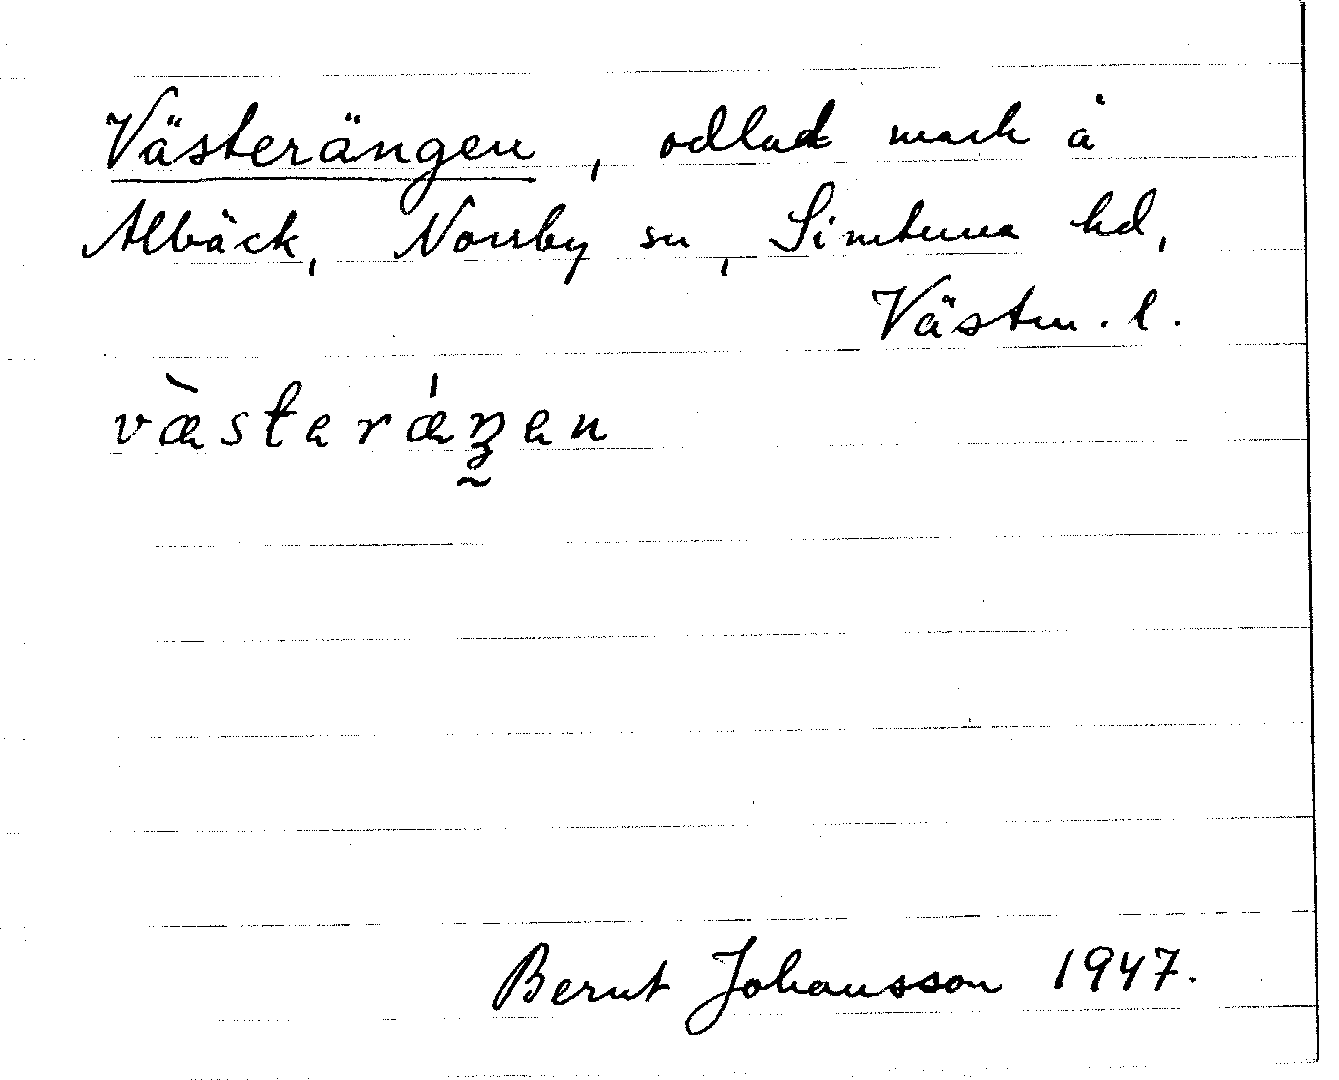 Västerängen, odlad mark å
Albäck, Norrby sn, Simtuna hd,
Västm. l.
væ̀sterǽŋen
Bernt Johansson 1947.